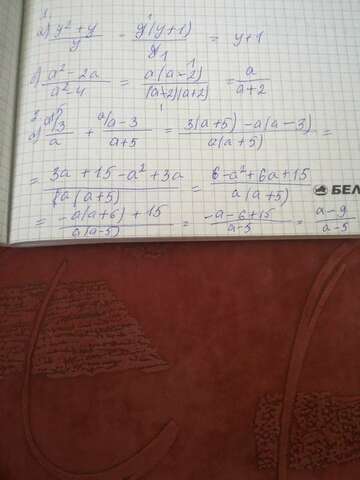 1
а) y² + y / y = y(y+1) / y = y+1
б) a² - 2a / a² - 4 = a(a-2) / (a-2)(a+2) = a / a+2
2
а) 3 / a + a-3 / a+5 = 3(a+5) - a(a-3) / a(a+5) =
= 3a + 15 - a² + 3a / a(a+5) = 6 - a² + 6a + 15 / a(a+5)
БЕЛ
= -a(a+6) + 15 / a(a-5) = -a - 6 + 15 / a-5 = a-9 / a-5